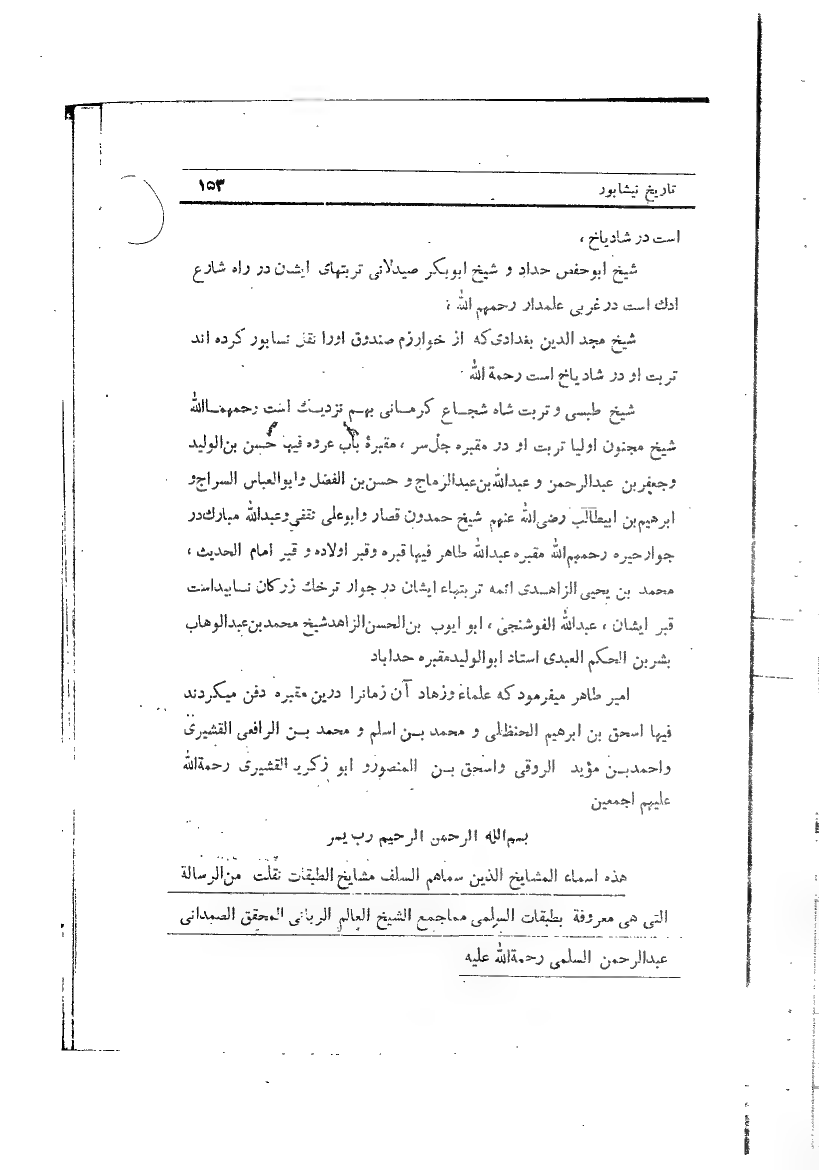 تاریخ نیشابور ۱۵۳
است در شادیاخ ،
شیخ ابوحفص حداد و شیخ ابوبکر صیدلانی تربتهای ایشان در راه شارع
ادك است در غربی علمدار رحمهم الله ،
شیخ مجد الدین بغدادی که از خوارزم صندوق اورا نقل نسابور کرده اند
تربت او در شادیاخ است رحمة الله
شیخ طبسی و تربت شاه شجاع کرمانی بهم نزدیك است رحمهماالله
شیخ مجنون اولیا تربت او در مقبره جل‌سر ، مقبرهٔ باب عروه فیها حسن بن‌الولید
وجعفربن عبدالرحمن و عبدالله‌بن‌عبدالرماج و حسن‌بن الفضل وابوالعباس السراج و
ابرهیم‌بن ابیطالب رضی‌الله عنهم شیخ حمدون قصار وابوعلی ثقفی وعبدالله مبارك‌در
جوارحیره رحمهم‌الله مقبره عبدالله طاهر فیها قبره وقبر اولاده و قبر امام الحدیث ،
محمد بن یحیی الزاهدی ائمه تربتهاء ایشان در جوار ترخك زرکان نابیداست
قبر ایشان ، عبدالله الفوشنجی ، ابو ایوب بن‌الحسن‌الزاهدشیخ محمدبن‌عبدالوهاب
بشربن الحکم العبدی استاد ابوالولیدمقبره حداباد
امیر طاهر میفرمود که علماء وزهاد آن زمانرا درین مقبره دفن میکردند
فیها اسحق بن ابرهیم الحنظلی و محمد بن اسلم و محمد بن الرافعی القشیری
واحمدبن مؤید الروقی واسحق بن المنصورو ابو زکریا القشیری رحمةالله
علیهم اجمعین
بسم‌الله الرحمن الرحیم رب یسر
هذه اسماء المشایخ الذین سماهم السلف مشایخ الطبقات نقلت من‌الرسالة
التی هی معروفة بطبقات السلمی مماجمع الشیخ العالم الربانی المحقق الصمدانی
عبدالرحمن السلمی رحمةالله علیه